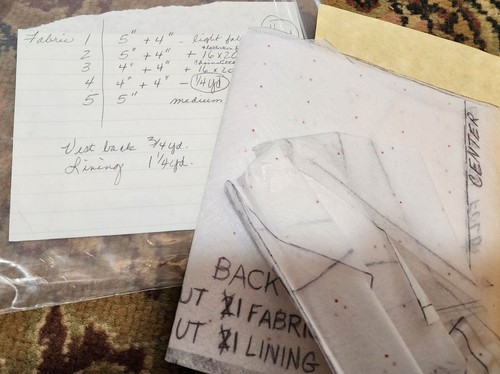 Fabric 1 5" + 4" - light
2 5" + 4" + 16 x 20
3 4" + 4" + 16 x 20
4 4" + 4" - 1/4 yd
5 5" medium
Vest back 3/4 yd.
Lining 1 1/4 yd.
CENTER
BACK
UT 1 FABRI
UT 1 LINING